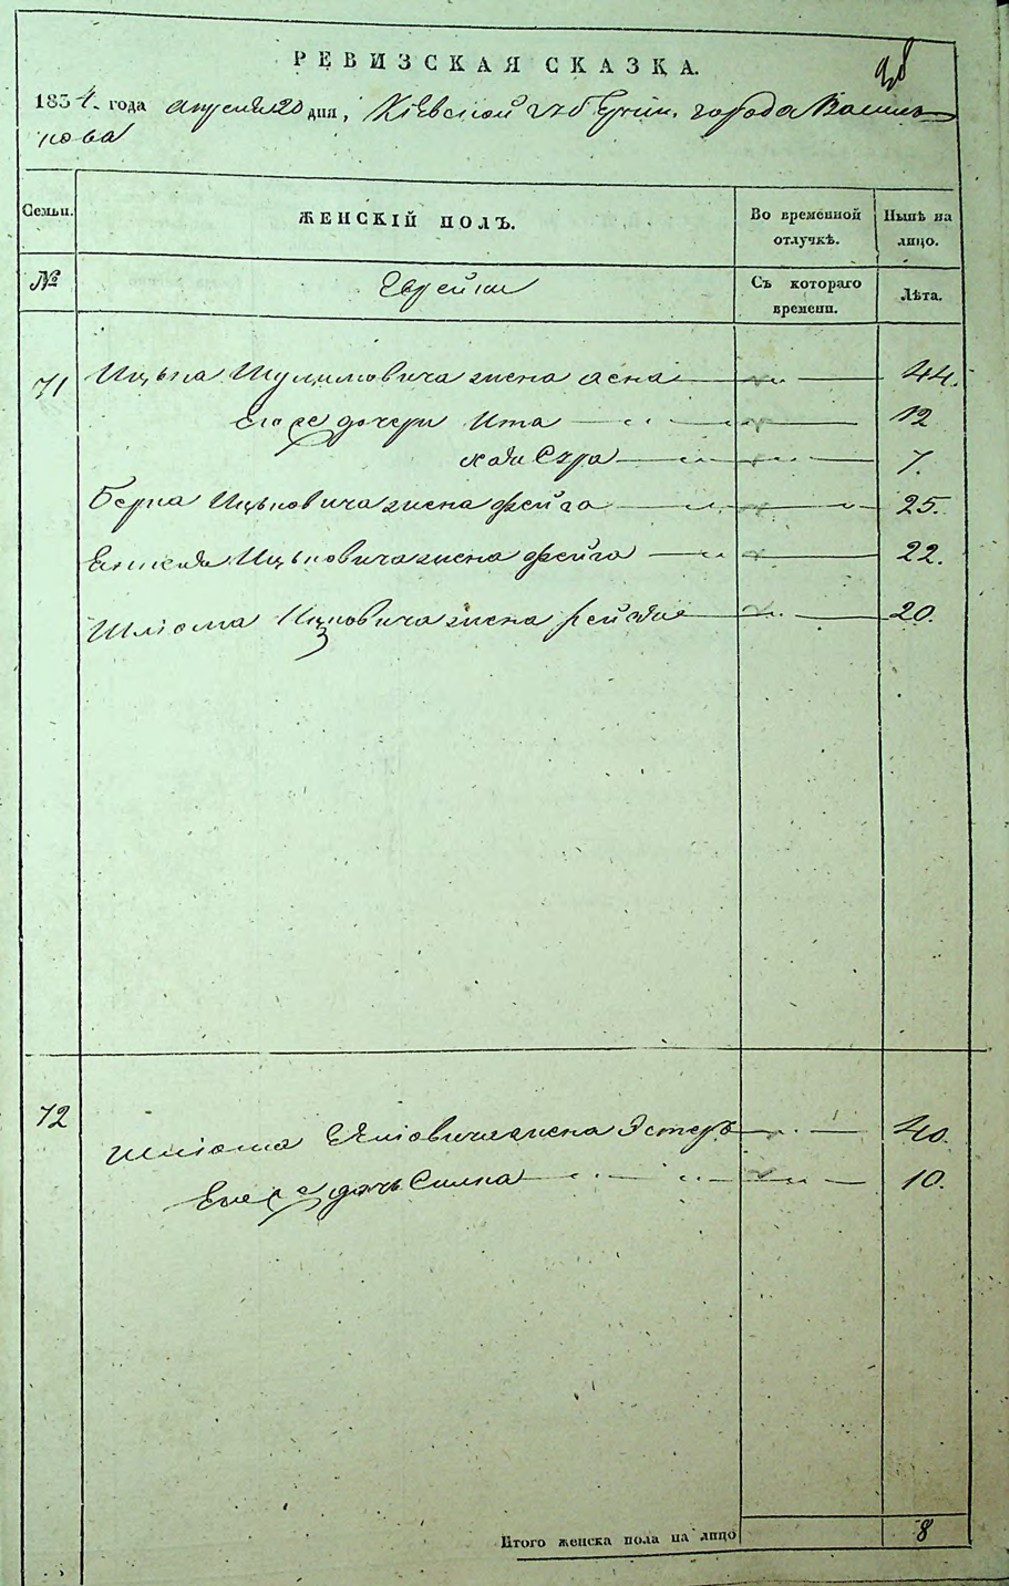 РЕВИЗСКАЯ СКАЗКА.
1834. года апреля 20 дня, Кіевской губерніи. города Василь
кова
Семьи. ЖЕНСКІЙ ПОЛЪ. Во временной отлучкѣ. Нынѣ на лицо.
№ Еврейки Съ котораго времени. Лѣта.
71 Ицька Шулимовича жена Асна 44.
его же дочери Ита 12
Сура 7.
Берка Ицьковича жена Фейга 25.
Ицьковича жена Фейга 22.
Шліома Ицковича жена Рейзля 20.
72 Шліома жена Эстеръ 40.
Его же дочь 10.
Итого женска пола на лицо 8